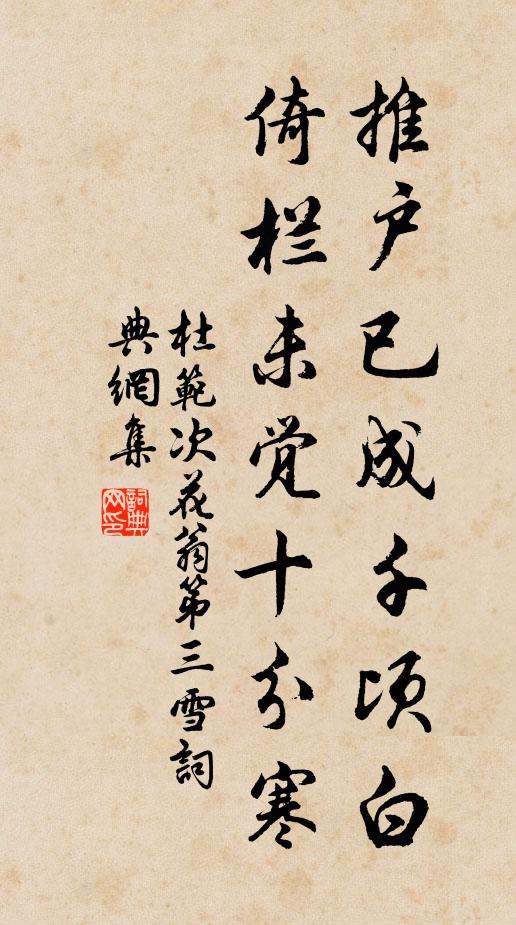 推户已成千顷白
倚栏未觉十分寒
杜範次花翁第三雪詞
典網集
詞典網印